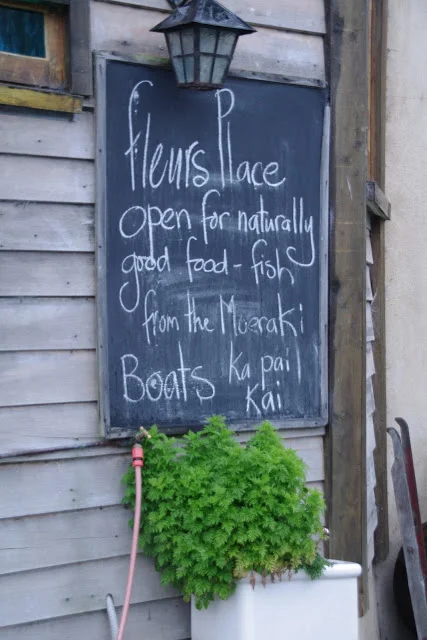 fleurs Place
open for naturally
good food - fish
from the Moeraki
Boats ka pai
kai